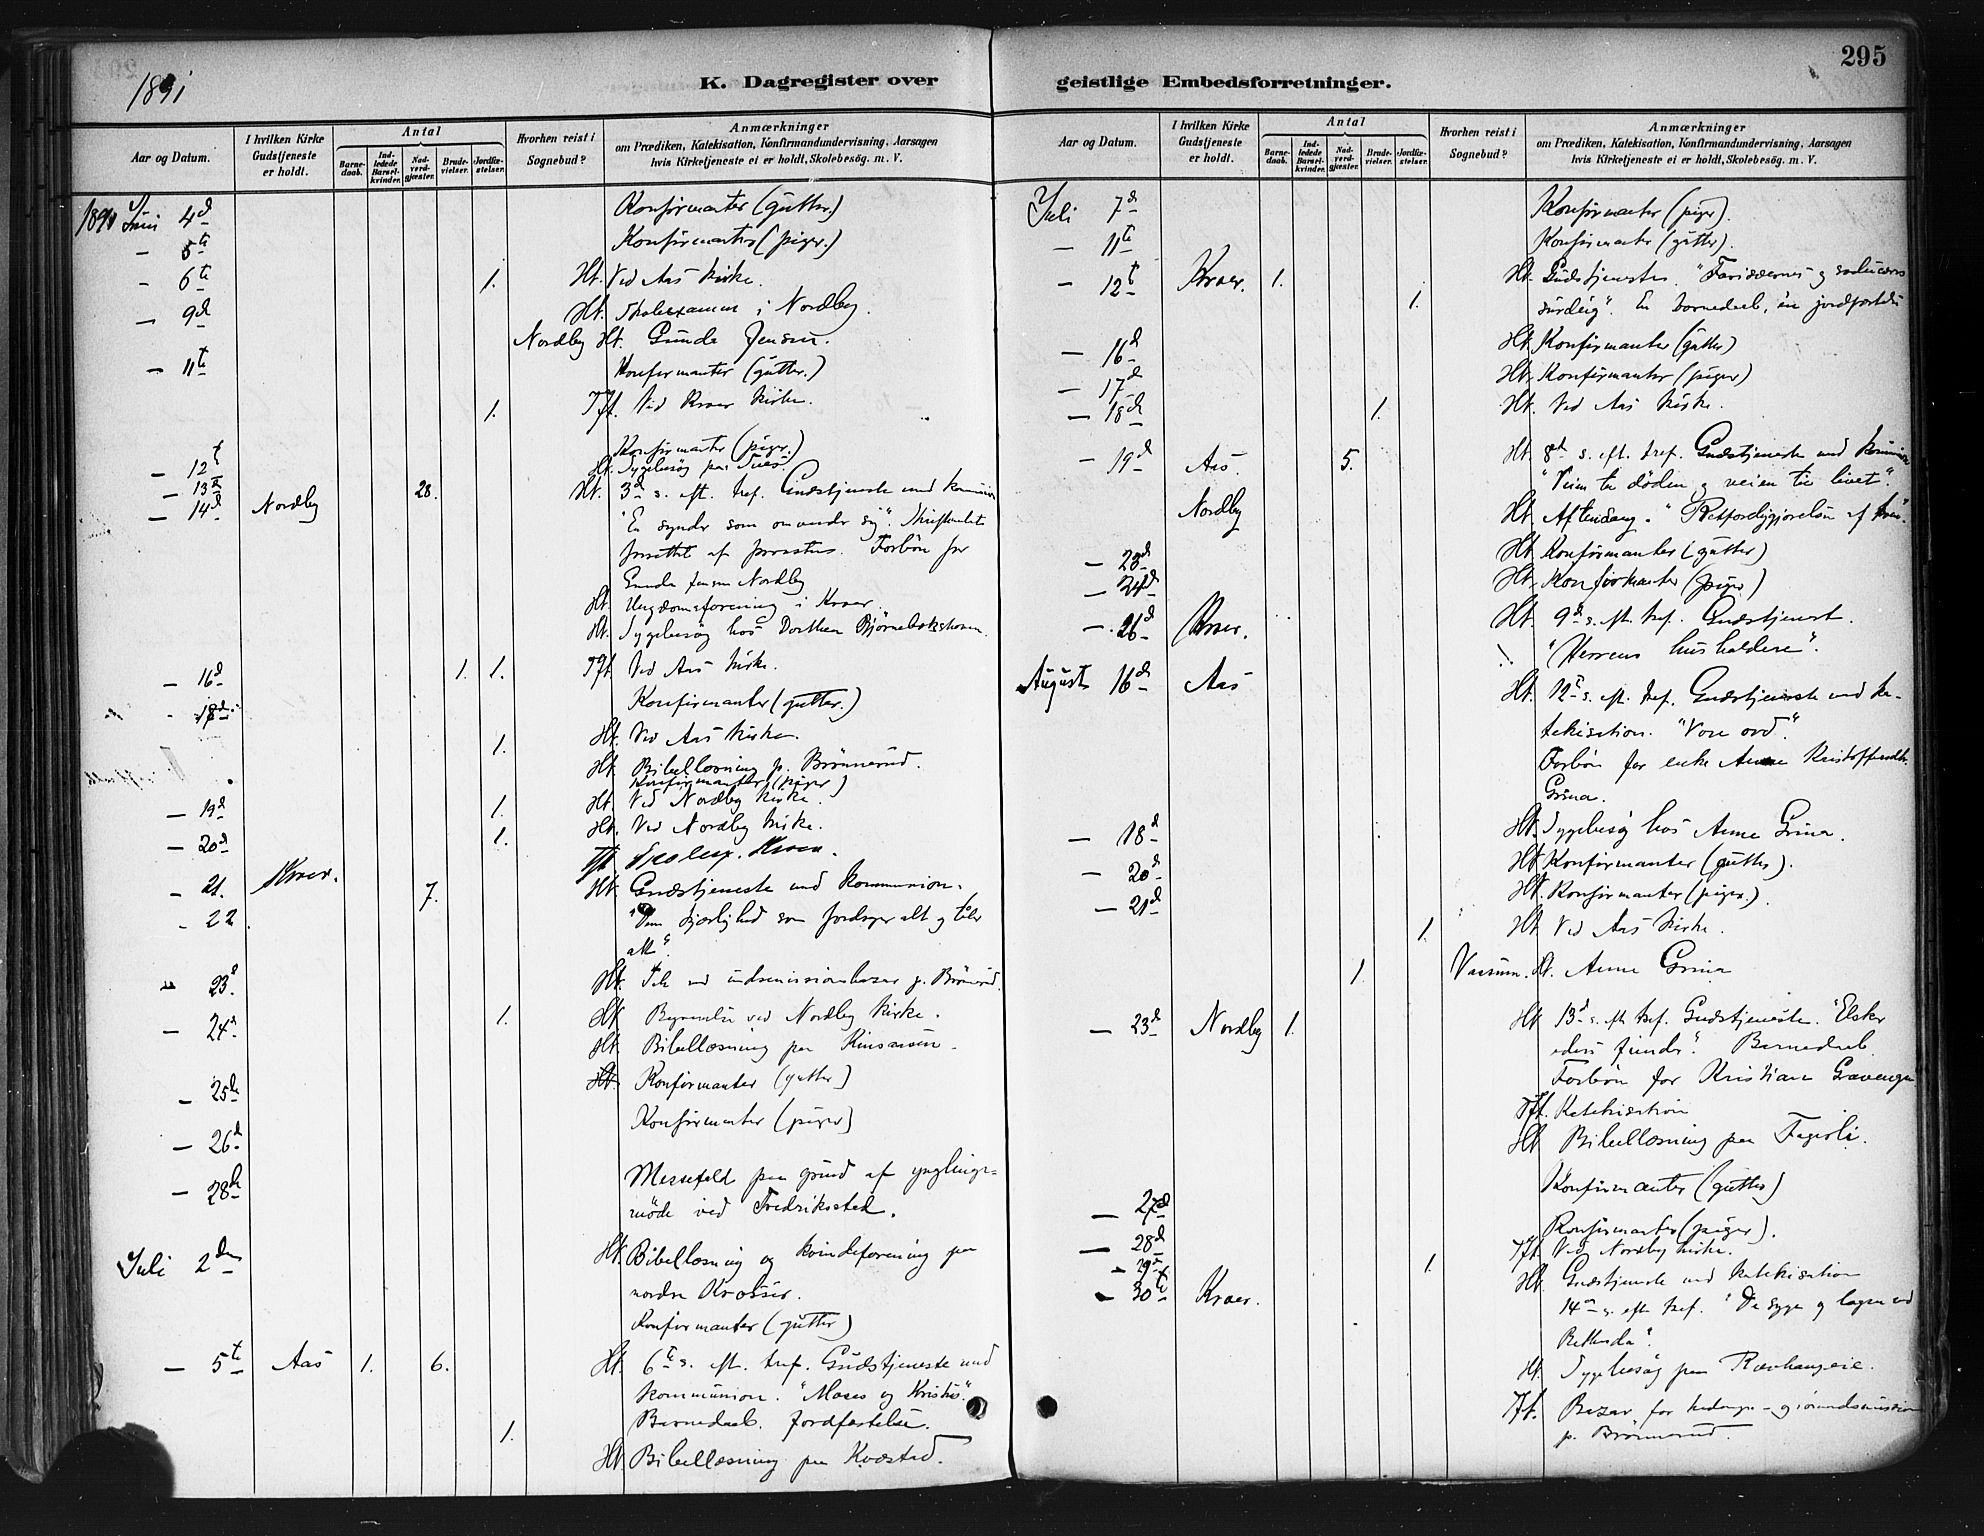 295
1891
K. Dagregister over geistlige Embedsforretninger.
Aar og Datum.
I hvilken Kirke Gudstjeneste er holdt.
Antal
Barnedaab.
Indledede Barselkvinder.
Nadverdgjæster.
Brudevielser.
Jordfæstelser.
Hvorhen reist i Sognebud?
Anmærkninger
om Prædiken, Katekisation, Konfirmandundervisning, Aarsagen
hvis Kirketjeneste ei er holdt, Skolebesög. m. V.
1891 Juni 4d Konfirmanter (gutter.)
- 5te Konfirmanter (piger.)
- 6te 1. Ht. Ved Aas kirke.
- 9d Ht. Skolexamen i Nordby.
Nordby Ht. Gunda Jensen.
- 11te Konfirmanter (gutter.)
1. Tft. Ved Kroer kirke.
- 12t Konfirmanter (piger.)
- 13d Ht. Sygebesøg paa
- 14d Nordby 28. Ht. 3d s. eft. tref. Gudstjeneste med kommunion
"En synder som omvender sig". Skriftemålet
forrettet af provsten. Forbøn for
Gunda Jensen Nordby
Ht. Ungdomsforening i Kroer.
Ht. Sygebesøg hos Dorthea
- 16d 1. 1. Tft. Ved Aas kirke.
- 18d Konfirmanter (gutter.)
1. Ht. Ved Aas kirke.
Ht. Bibellæsning p. Brønnerud.
Konfirmanter (piger)
- 19d 1. Ht. Ved Nordby kirke.
- 20d 1. Ht. Ved Nordby kirke.
Tft. Skolex. Kroer.
- 21. Kroer. 7. Ht. Gudstjeneste med kommunion.
- 22. "Den kjærlighed som fordrager alt og tåler
alt".
- 23d. Ht. ved indremissionsbazar p. Brönnerud.
- 24d 1. Ht. Begravelse ved Nordby kirke.
Ht. Bibellæsning paa
- 25de Ht. Konfirmanter (gutter)
- 26d Konfirmanter (piger)
- 28de Messefald paa grund af ynglinge-
møde ved Fredriksstad.
Juli 2den Ht. Bibellæsning og kvindeforening paa
nordre Krosser.
Konfirmanter (gutter)
- 5te Aas 1. 6. Ht. 6te s. eft. tref. Gudstjeneste med
kommunion. "Moses og Kristus".
1. Barnedaab. Jordfæstelse.
Ht. Bibellæsning paa Kvæstad.
Aar og Datum.
I hvilken Kirke Gudstjeneste er holdt.
Antal
Barnedaab.
Indledede Barselkvinder.
Nadverdgjæster.
Brudevielser.
Jordfæstelser.
Hvorhen reist i Sognebud?
Anmærkninger
om Prædiken, Katekisation, Konfirmandundervisning, Aarsagen
hvis Kirketjeneste ei er holdt, Skolebesög. m. V.
Juli 7d Konfirmanter (piger).
- 11te Konfirmanter (gutter).
- 12t Kroer. 1. Ht. Gudstjeneste. "Farisæernes og saducæernes
1. surdeig". En barnedaab, én jordfæstelse
- 16d Ht. Konfirmanter (gutter)
- 17d Ht. Konfirmanter (piger)
- 18d 1. Ht. Ved Aas kirke.
- 19d Aas. 5. Ht. 8d s. eft. tref. Gudstjeneste med kommunion
"Veien til døden og veien til livet".
Nordby Ht. Aftensang. "Retfærdiggjørelse af troen".
- 23d Ht. Konfirmanter (gutter)
- 24d Ht. Konfirmanter (piger)
- 26d Kroer. Ht. 9d s. eft. tref. Gudstjenest.
"Herrens husholdere".
August 16d Aas Ht. 12te s. eft. tref. Gudstjeneste med ka-
tekisation. "Vore ord".
Forbøn for enke Anne Kristoffersdtr.
Grina.
- 18d Ht. Sygebesøg hos Anne Grina.
- 20d Ht. Konfirmanter (gutter).
- 21d Ht. Konfirmanter (piger).
1. Ht. Ved Aas kirke.
1. Vassum. Ht. Anne Grina
- 23d Nordby 1. Ht. 13d s. eft. tref. Gudstjeneste. "Elsker
eders fiender". Barnedaab.
Forbøn for Kristian
Tft. Katekisation
Ht. Bibellæsning paa Fagerli.
- 27d Konfirmanter (gutter)
- 28d Konfirmanter (piger).
- 29d 1. Tft. Ved Nordby kirke.
- 30te Kroer. Ht. Gudstjeneste med katekisation
14de s. efter tref. "De syge og lægen ved
Bethesda".
Ht. Sygebesøg paa
Tft. Bazar for hedninge- og indremission
p. Brønnerud.